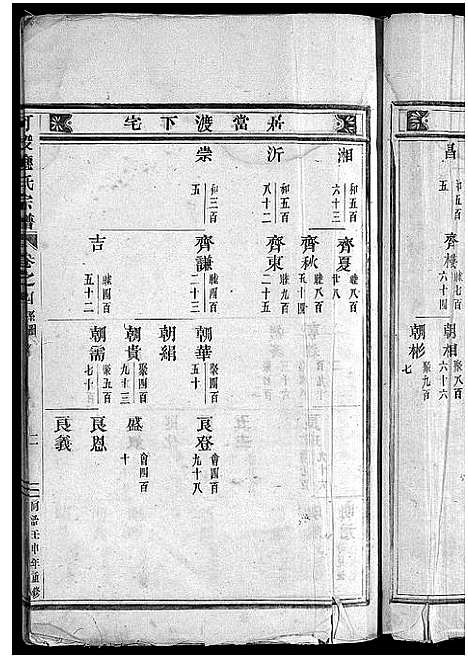 昌
五 和五百
齊樓
六十四 睦七百
朝相
六十六 聚八百
朝彬
七 聚九百
居當渡下宅
湘
六十三 和五百
齊夏
廿八 睦八百
齊秋
睦八百
沂
八十二 和五百
齊東
二十五 睦九百
崇
五 和三百
齊謙
二十三 睦四百
朝華
五十 聚四百
良登
九十八 會四百
朝紹
朝貴
九十三 聚四百
盛
十 會四百
吉
五十二 睦四百
朝儒
七十 聚五百
良恩
良義
氏宗譜
卷之四 系圖
二
同治壬申年重修